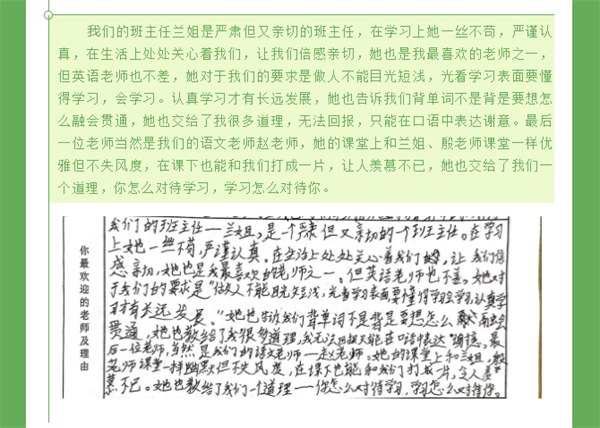 我们的班主任兰姐是严肃但又亲切的班主任，在学习上她一丝不苟，严谨认
真，在生活上处处关心着我们，让我们倍感亲切，她也是我最喜欢的老师之一，
但英语老师也不差，她对于我们的要求是做人不能目光短浅，光看学习表面要懂
得学习，会学习。认真学习才有长远发展，她也告诉我们背单词不是背是要想怎
么融会贯通，她也交给了我很多道理，无法回报，只能在口语中表达谢意。最后
一位老师当然是我们的语文老师赵老师，她的课堂上和兰姐、殷老师课堂一样优
雅但不失风度，在课下也能和我们打成一片，让人羡慕不已，她也交给了我们一
个道理，你怎么对待学习，学习怎么对待你。
你最欢迎的老师及理由
我们的班主任——兰姐，是一个严肃但又亲切的一个班主任。在学习
上她一丝不苟，严谨认真，在生活上处处关心着我们，让我们倍
感亲切，她也是我最喜欢的老师之一。但英语老师也不差。她对
于我们的要求是“做人不能目光短浅，光看学习表面要懂得学习会学习，认真学
习才有长远发展。”她也告诉我们背单词不是背是要想怎么融会
贯通，她也教给了我很多道理，我无法回报只能在口语中表达谢意。最
后一位老师，当然是我们的语文老师——赵老师。她的课堂上和兰姐、殷
老师课堂一样幽默但不失风度，在课下也能和我们打成一片，令人羡
慕不已。她也教给了我们一个道理——你怎么对待学习，学习怎么对待你。